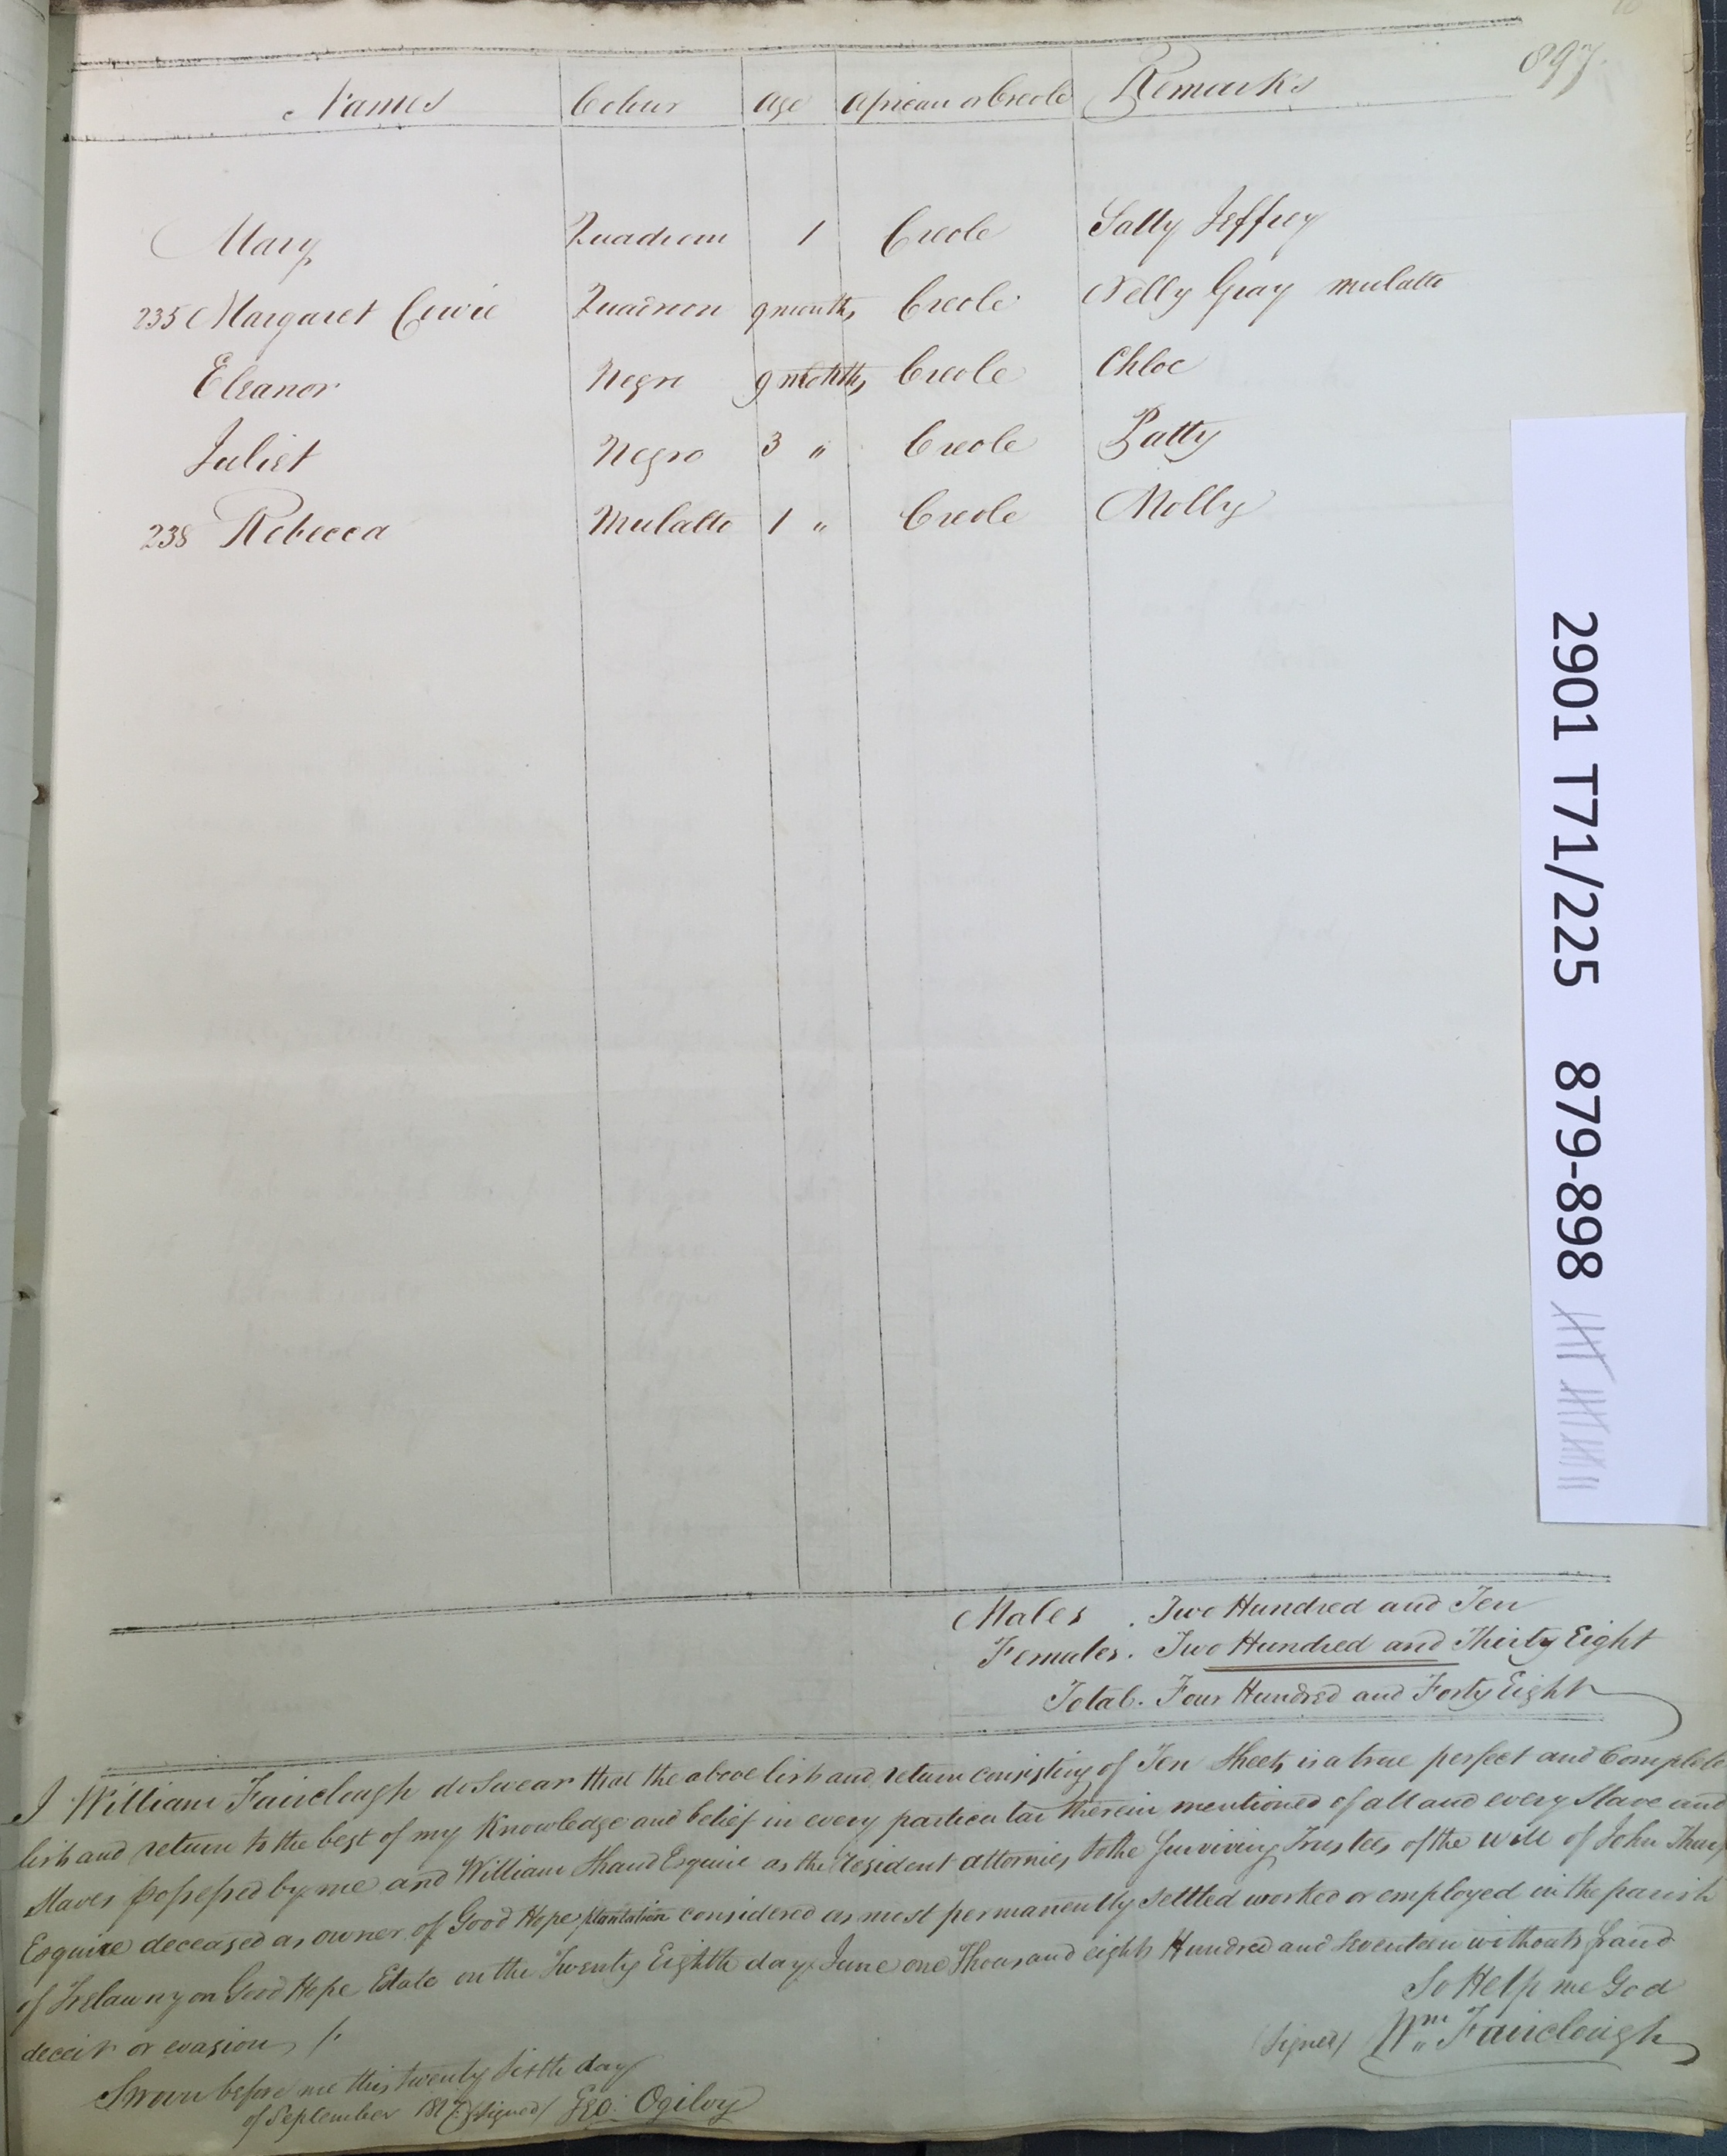 897.
Names Colour Age African or Creole Remarks
Mary Quadroon 1 Creole Sally Jeffrey
235 Margaret Quadroon 9 months Creole Nelly Gray mulatto
Eleanor Negro 9 months Creole Chloe
Juliet Negro 3 " Creole Patty
238 Rebecca Mulatto 1 " Creole Molly
2901 T71/225 879-898
Males . Two Hundred and Ten
Females . Two Hundred and Thirty Eight
Total . Four Hundred and Forty Eight
I William Fairclough do Swear that the above list and return consisting of Ten Sheets is a true perfect and Complete
list and return to the best of my Knowledge and belief in every particular therein mentioned of all and every Slave and
Slaves possessed by me and William Shand Esquire as the resident attornies to the Surviving Trustees of the Will of John
Esquire deceased as owner of Good Hope plantation considered as most permanently Settled worked or employed in the parish
of Trelawny on Good Hope Estate on the Twenty Eighth day June one Thousand eight Hundred and Seventeen without fraud
deceit or evasion
So Help me God
(Signed) Wm Fairclough
Sworn before me this twenty Sixth day
of September 1817. (signed) Geo: Ogilvy